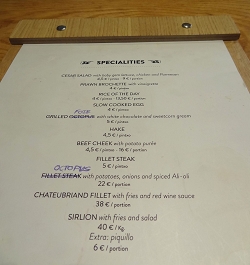 SPECIALITIES
CESAR SALAD with baby gem lettuce, chicken and Parmesan
4,5 € /pintxo - 9 € / portion
PRAWN BROCHETTE with vinaigrette
4 € / pintxo
RICE OF THE DAY
4 € / pintxo - 13,50 € / portion
SLOW COOKED EGG
4 € / pintxo
FOIE
GRILLED OCTOPUS with white chocolate and sweetcorn green
5 € / pintxo
HAKE
4,5 € / pintxo
BEEF CHEEK with potato purée
4,5 € / pintxo - 16 € / portion
FILLET STEAK
5 € / pintxo
OCTOPUS
FILLET STEAK with potatoes, onions and spiced Ali-oli
22 € / portion
CHATEUBRIAND FILLET with fries and red wine sauce
38 € / portion
SIRLION with fries and salad
40 € / Kg
Extra: piquillo
6 € / portion